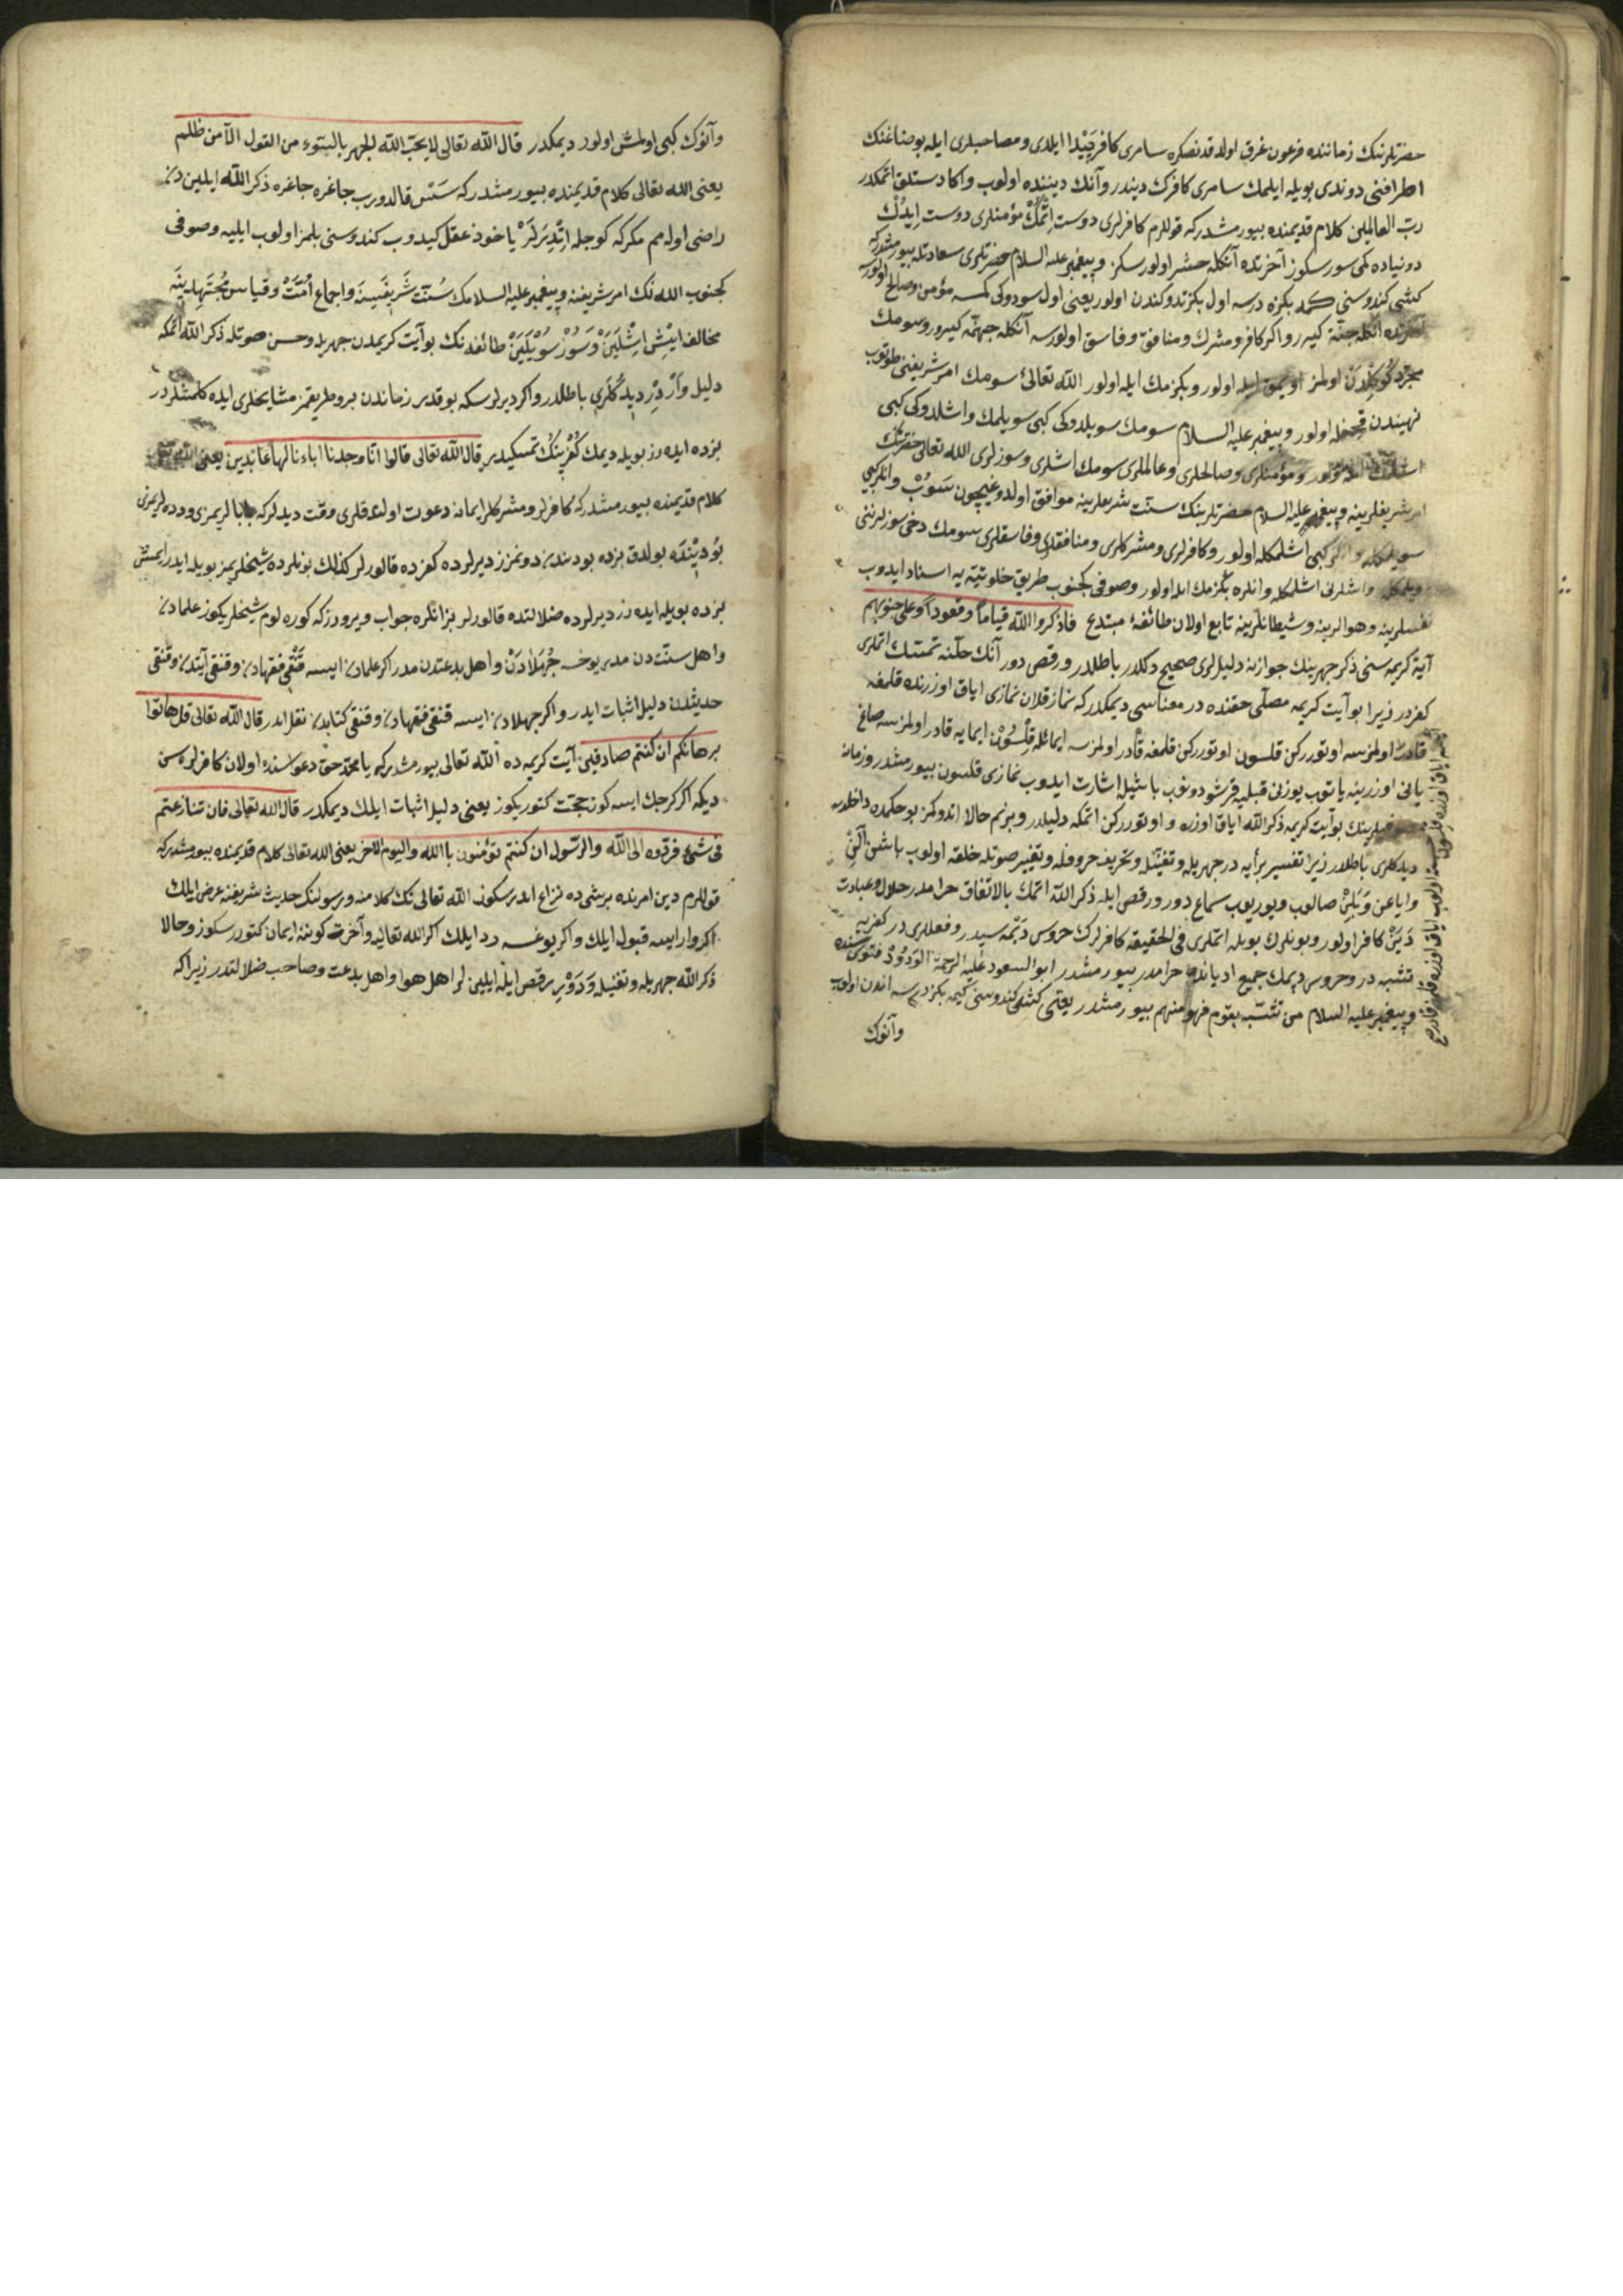 حضرتلرنك زماننده فرعون غرق اولدقدنصكره سامرى كافر پيدا ايلدى ومصاحبلرى ايله بوصناغنك
اطرافنى دوندى بويله ايلمك سامرى كافرك ديندر وآنك ديننده اولوب واكا دستلق اتمكدر
ربّ العالمين كلام قديمنده بيورمشدركه قوللرم كافرلرى دوست اتمك مؤمنلرى دوست ايدك
دونياده كمى سورسكوز آخرتده آنكله حشر اولورسكز وپيغمبر عليه السلام حضرتلرى سعادتله بيورمشدركه
كشى كندوسنى كمه بكزه درسه اول بكزتدوكندن اولور يعنى اول سودوكى كمسه مؤمن وصالح اولورسه
آنكله جنّته كيرر واكر كافر ومشرك ومنافق وفاسق اولورسه آنكله جهنّمه كيرر وسومك
مجرّد اولمز ايله اولور وبكزمك ايله اولور الله تعالى سومك امر شريفنى طوتوب
نهيندن قچمغله اولور وپيغمبر عليه السلام سومك سويلدوكى كبى سويلمك واشلدوكى كبى
اشلمك ايله اولور ومؤمنلرى وصالحلرى وعالملرى سومك اشلرى وسوزلرى الله تعالى حضرتنك
امر شريفلرينه وپيغمبر عليه السلام حضرتلرينك سنّت شريفلرينه موافق اولدوغيچون سوب وانلر كبى
سويلمكله كبى اشلمكله اولور وكافرلرى ومشركلرى ومنافقلرى وفاسقلرى سومك دخى سوزلرننى
سويلمكله واشلرنى اشلمكله وانلره بكزمك ايله اولور وصوفى كجنوب طريق خلوتيّه يه اسناد ايدوب
نفسلرينه وهوالرينه وشيطانلرينه تابع اولان طائفهٔ مبتدع فاذكروا الله قياماً وقعوداً وعلى جنوبهم
آية كريمه سنى ذكر جهرينك جوازنه دليللرى صحيح دكلدر باطلدر ورقص دور آنك حلّنه تمسّك اتملرى
كفردر زيرا بو آيت كريمه مصلّى حقنده در معناسى ديمكدركه نماز قلان نمازى اياق اوزرنده قلمغه
قادر اولمزسه اوتورركن قلسون اوتورركن قلمغه قادر اولمزسه ايمائله قلسون ايمايه قادر اولمزسه صاغ
يانى اوزرينه ياتوب يوزنى قبليه قرشو دونوب باشيله اشارت ايدوب نمازى قلسون بيورمشدر وزمانه
بو آيت كريمه ذكر الله اياق اوزره واوتورركن اتمكه دليلدر وبزم حالا اتدوكمز بو حكمده داخلدر
ديدكلرى باطلدر زيرا تفسير برأيه در جهريله وتغنّيله وتحريف حروفله وتغيير صوتله حلقه اولوب باشن الّن
واياغن وبلين صالوب ويوريوب سماع دور ورقص ايله ذكر الله اتمك بالاتفاق حرامدر حلال وعبادت
دين كافر اولور وبونلرك بويله اتملرى فى الحقيقه كافرلرك خروس دپمه سيدر وفعللرى در كفريه
تشبه در وخروس دپمك جميع اديانده حرامدر بيورمشدر ابو السعود عليه الرحمة الودود فتوى سنده
وپيغمبر عليه السلام من تشبّه بقوم فهو منهم بيورمشدر يعنى كشى كندوسنى كيمه بكزدرسه اندن اولوب
وآنوك
وآنوك كبى اولمش اولور ديمكدر قال الله تعالى لا يحبّ الله الجهر بالسّوء من القول الّا من ظلم
يعنى الله تعالى كلام قديمنده بيورمشدركه سس قالدورب چاغره چاغره ذكر الله ايلين دن
راضى اوله مم مكركه كوجله اتديرلر يا خود عقل كيدوب كندوسنى بلمز اولوب ايليه وصوفى
كجنوب اللهنك امر شريفنه وپيغمبر عليه السلامك سنّت شريفسينه واجماع امّت وقياس مجتهدينه
مخالف ايش اشلين وسوز سويلين طائفه نك بو آيت كريمدن جهريله وحسن صوتله ذكر الله اتمكه
دليل واردر ديدكلرى باطلدر واكر ديرلرسكه بوقدر زماندن برو طريقمز مشايخلرى ايده كلمشلردر
بزده ايده رز بويله ديمك كفرينك تمسكيدير قال الله تعالى قالوا انّا وجدنا اباءنا لها عابدين يعنى الله تعالى
كلام قديمنده بيورمشدركه كافرلر ومشركلر ايمانه دعوت اولندقلرى وقت ديدلركه بابالريمزى ودده لريمزى
بو دينده بولدق بزده بو ديندن دونمزز ديرلرده كفرده قالورلر كذلك بونلرده شيخلريمز بويله ايدر ايمش
بزده بويله ايده رز ديرلرده ضلالتده قالورلر بز انلره جواب ويرورزكه كوره لوم شيخلريكوز علمادن
واهل سنّت دن مدر يوخسه جهلادن واهل بدعتدن مدر اكر علمادن ايسه قنغى فقهادن وقنغى آيتدن وقنغى
حديثدن دليل اثبات ايدر واكر جهلادن ايسه قنغى فقهادن وقنغى كتابدن نقل ايدر قال الله تعالى قل هاتوا
برهانكم ان كنتم صادقين آيت كريمه ده الله تعالى بيورمشدركه يا محمّد حق دعواسنده اولان كافرلره سن
ديكه اكر كرچك ايسه كوز حجّت كتوريكوز يعنى دليل اثبات ايلك ديمكدر قال الله تعالى فان تنازعتم
فى شئ فردّوه الى الله والرّسول ان كنتم تؤمنون باالله واليوم الاخر يعنى الله تعالى كلام قديمنده بيورمشدركه
قوللرم دين امرنده برشى ده نزاع ايدرسكوز الله تعالى نك كلامنه ورسولنك حديث شريفنه عرض ايلك
اكر وارايسه قبول ايلك واكر يوغسه ردّ ايلك اكر الله تعاليه وآخرت كوننه ايمان كتوررسكوز وحالا
ذكر الله جهريله وتغنيله ودوْر رقص ايله ايلين لر اهل هوا واهل بدعت وصاحب ضلالتدر زيراكه